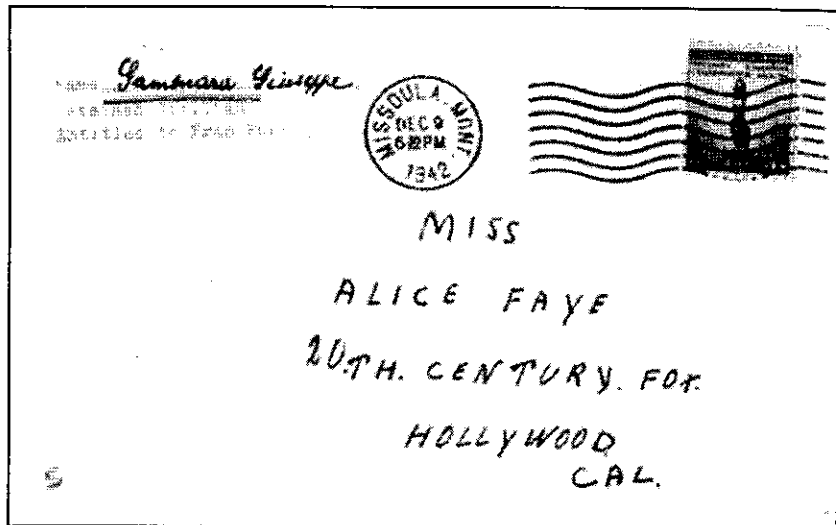 Name Giuseppe
Detained
Entitled to Free
MISSOULA, MONT.
DEC 9
6 PM
1942
MISS
ALICE FAYE
20.TH. CENTURY. FOX.
HOLLYWOOD
CAL.